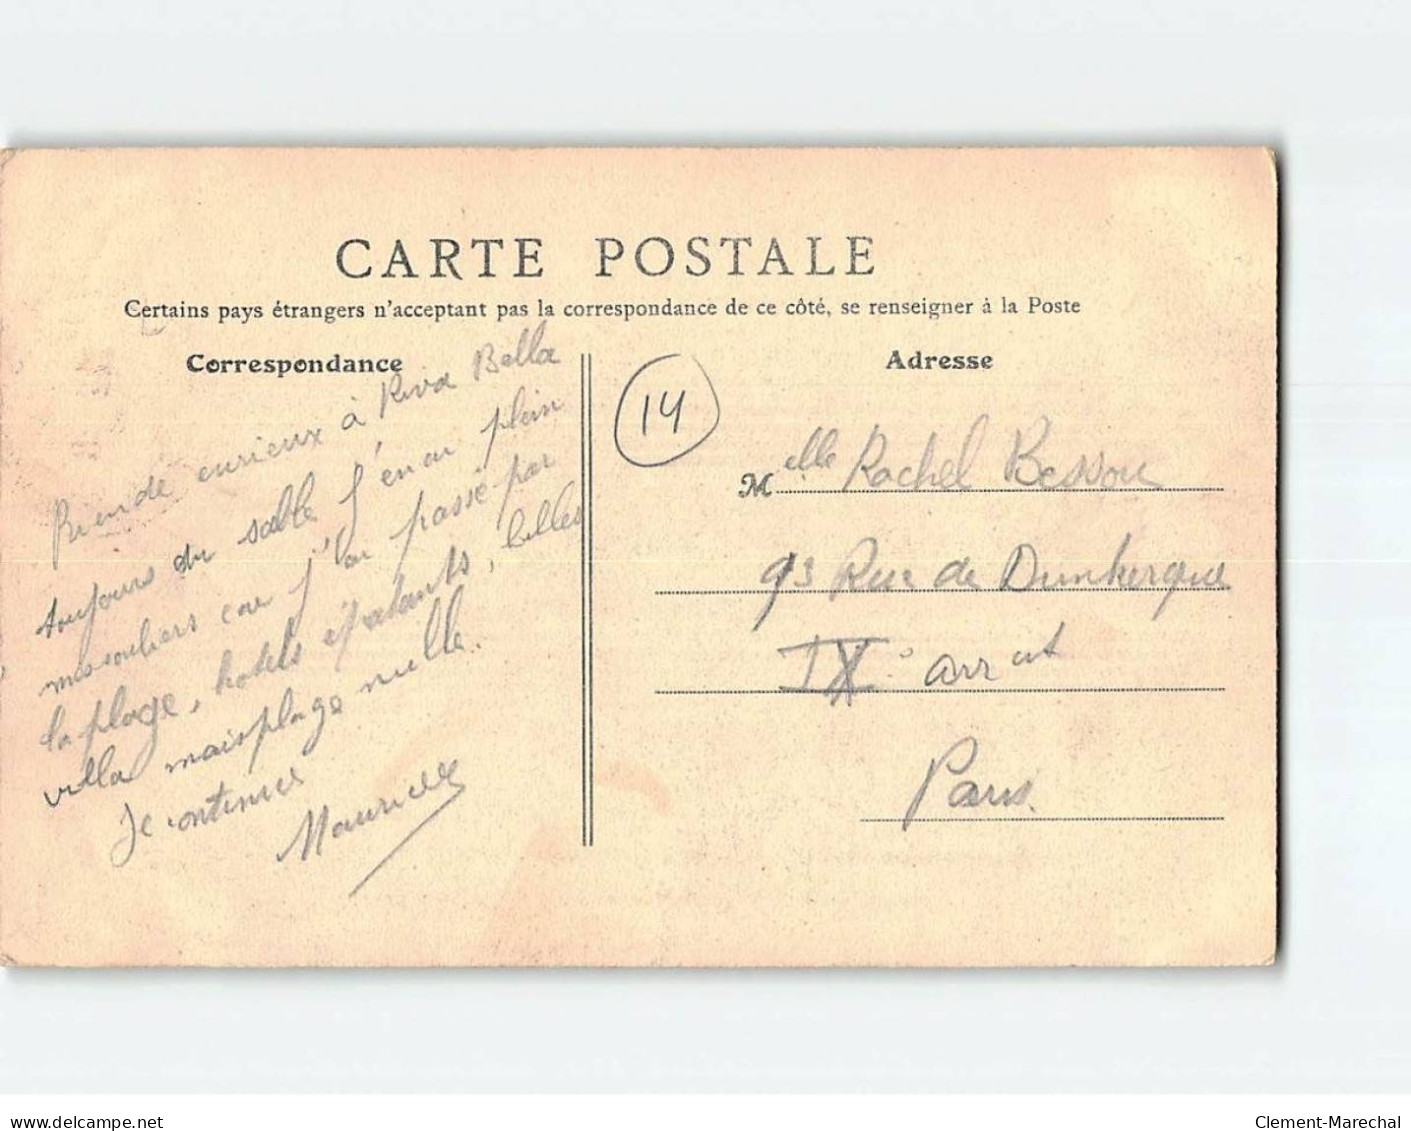 CARTE POSTALE
Certains pays étrangers n'acceptant pas la correspondance de ce côté, se renseigner à la Poste
Correspondance
Rien de curieux à Riva Bella
toujours du sable j'en ai plein
mes souliers car j'ai passé par
la plage, hotels épatants, belles
villa mais plage nulle.
Je continue
Maurice
Adresse
14
Melle Rachel Bessou
93 Rue de Dunkerque
IX° arrnt
Paris.
www.delcampe.net
Clement-Marechal